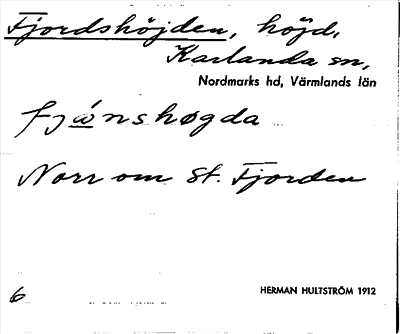 Fjordshöjden, höjd,
Karlanda sn,
Nordmarks hd, Värmlands län
fjǿnshøgda
Norr om St. Fjorden
6
HERMAN HULTSTRÖM 1912